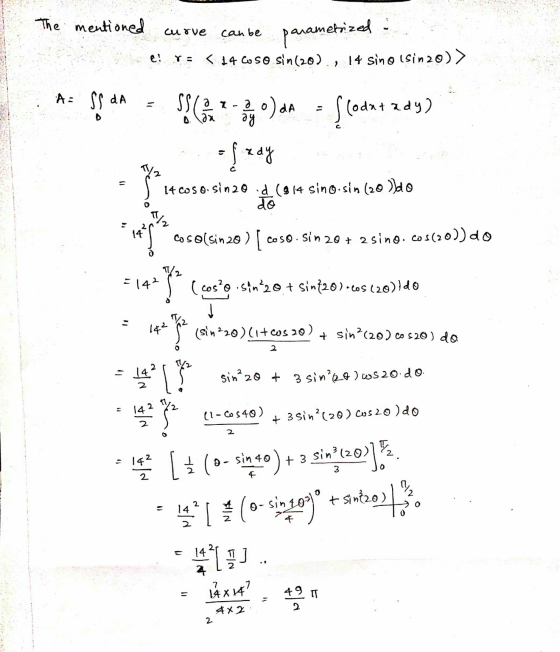 The mentioned curve can be parametrized -
e: r = < 14 cosθ sin(2θ) , 14 sinθ (sin2θ) >
A = ∬_D dA = ∬_D (∂/∂x x - ∂/∂y 0) dA = ∫_C (0dx + x dy)
= ∫_C x dy
= ∫_0^{π/2} 14 cosθ. sin2θ . d/dθ (14 sinθ. sin (2θ)) dθ
= 14² ∫_0^{π/2} cosθ (sin2θ) [ cosθ. sin 2θ + 2 sinθ. cos(2θ)) dθ
= 14² ∫_0^{π/2} (cos²θ . sin²2θ + sin²(2θ) . cos (2θ)) dθ
↓
= 14² ∫_0^{π/2} (sin²2θ) (1 + cos 2θ)/2 + sin²(2θ) cos2θ) dθ
= 14²/2 [ ∫_0^{π/2} sin²2θ + 3 sin²(2θ) cos2θ. dθ
= 14²/2 ∫_0^{π/2} (1-cos4θ)/2 + 3 sin²(2θ) cos2θ ) dθ
= 14²/2 [ 1/2 (θ - sin4θ/4) + 3 sin³(2θ)/3 ]_0^{π/2} .
= 14²/2 [ 1/2 (θ - sin4θ/4)^0 + sin³(2θ) |_0^{π/2} → 0
= 14²/4 [ π/2 ] ..
= 14^7 × 14^7 / 4 × 2 = 49/2 π
2